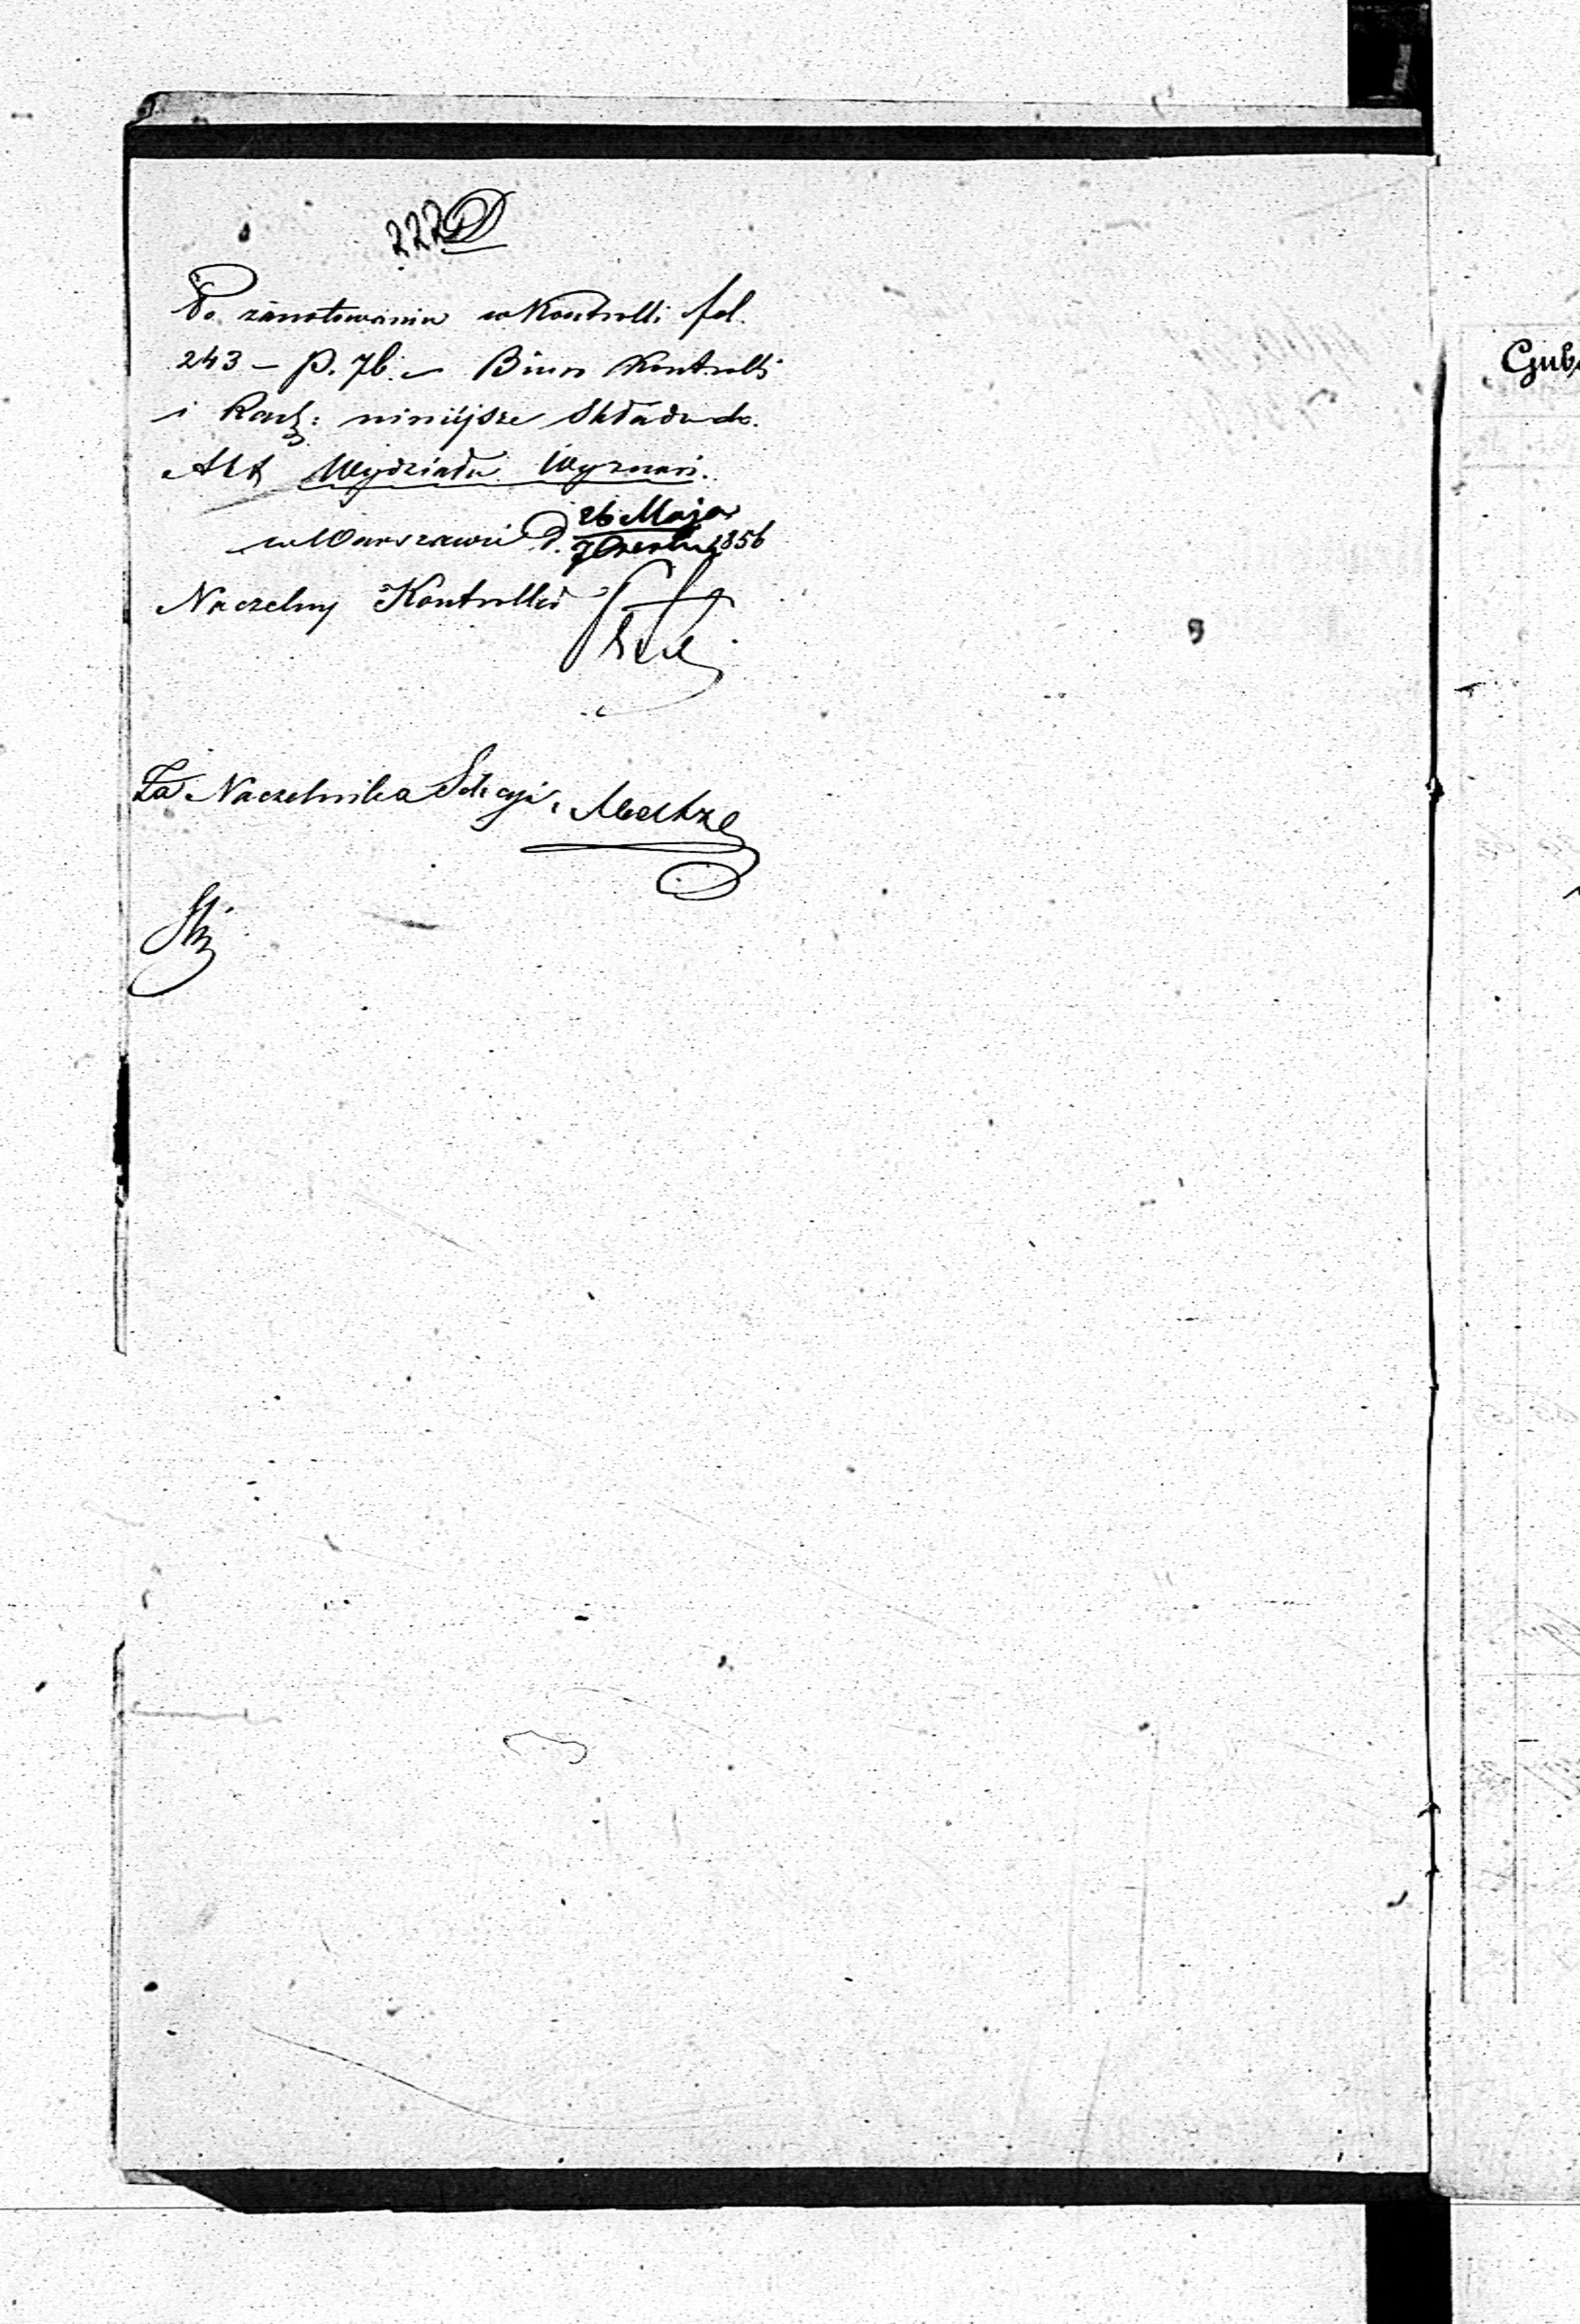 222
Po zanotowaniu w Kontrolli fol.
243 – p. 76. – Biuro Kontrolli
i Rach: niniejsze składa do
Akt Wydziału Wyznań.
w Warszawie d. 26 Maja
7 Czerwca 1856
Naczelny Kontroller
Za Naczelnika Sekcyi,
Gub